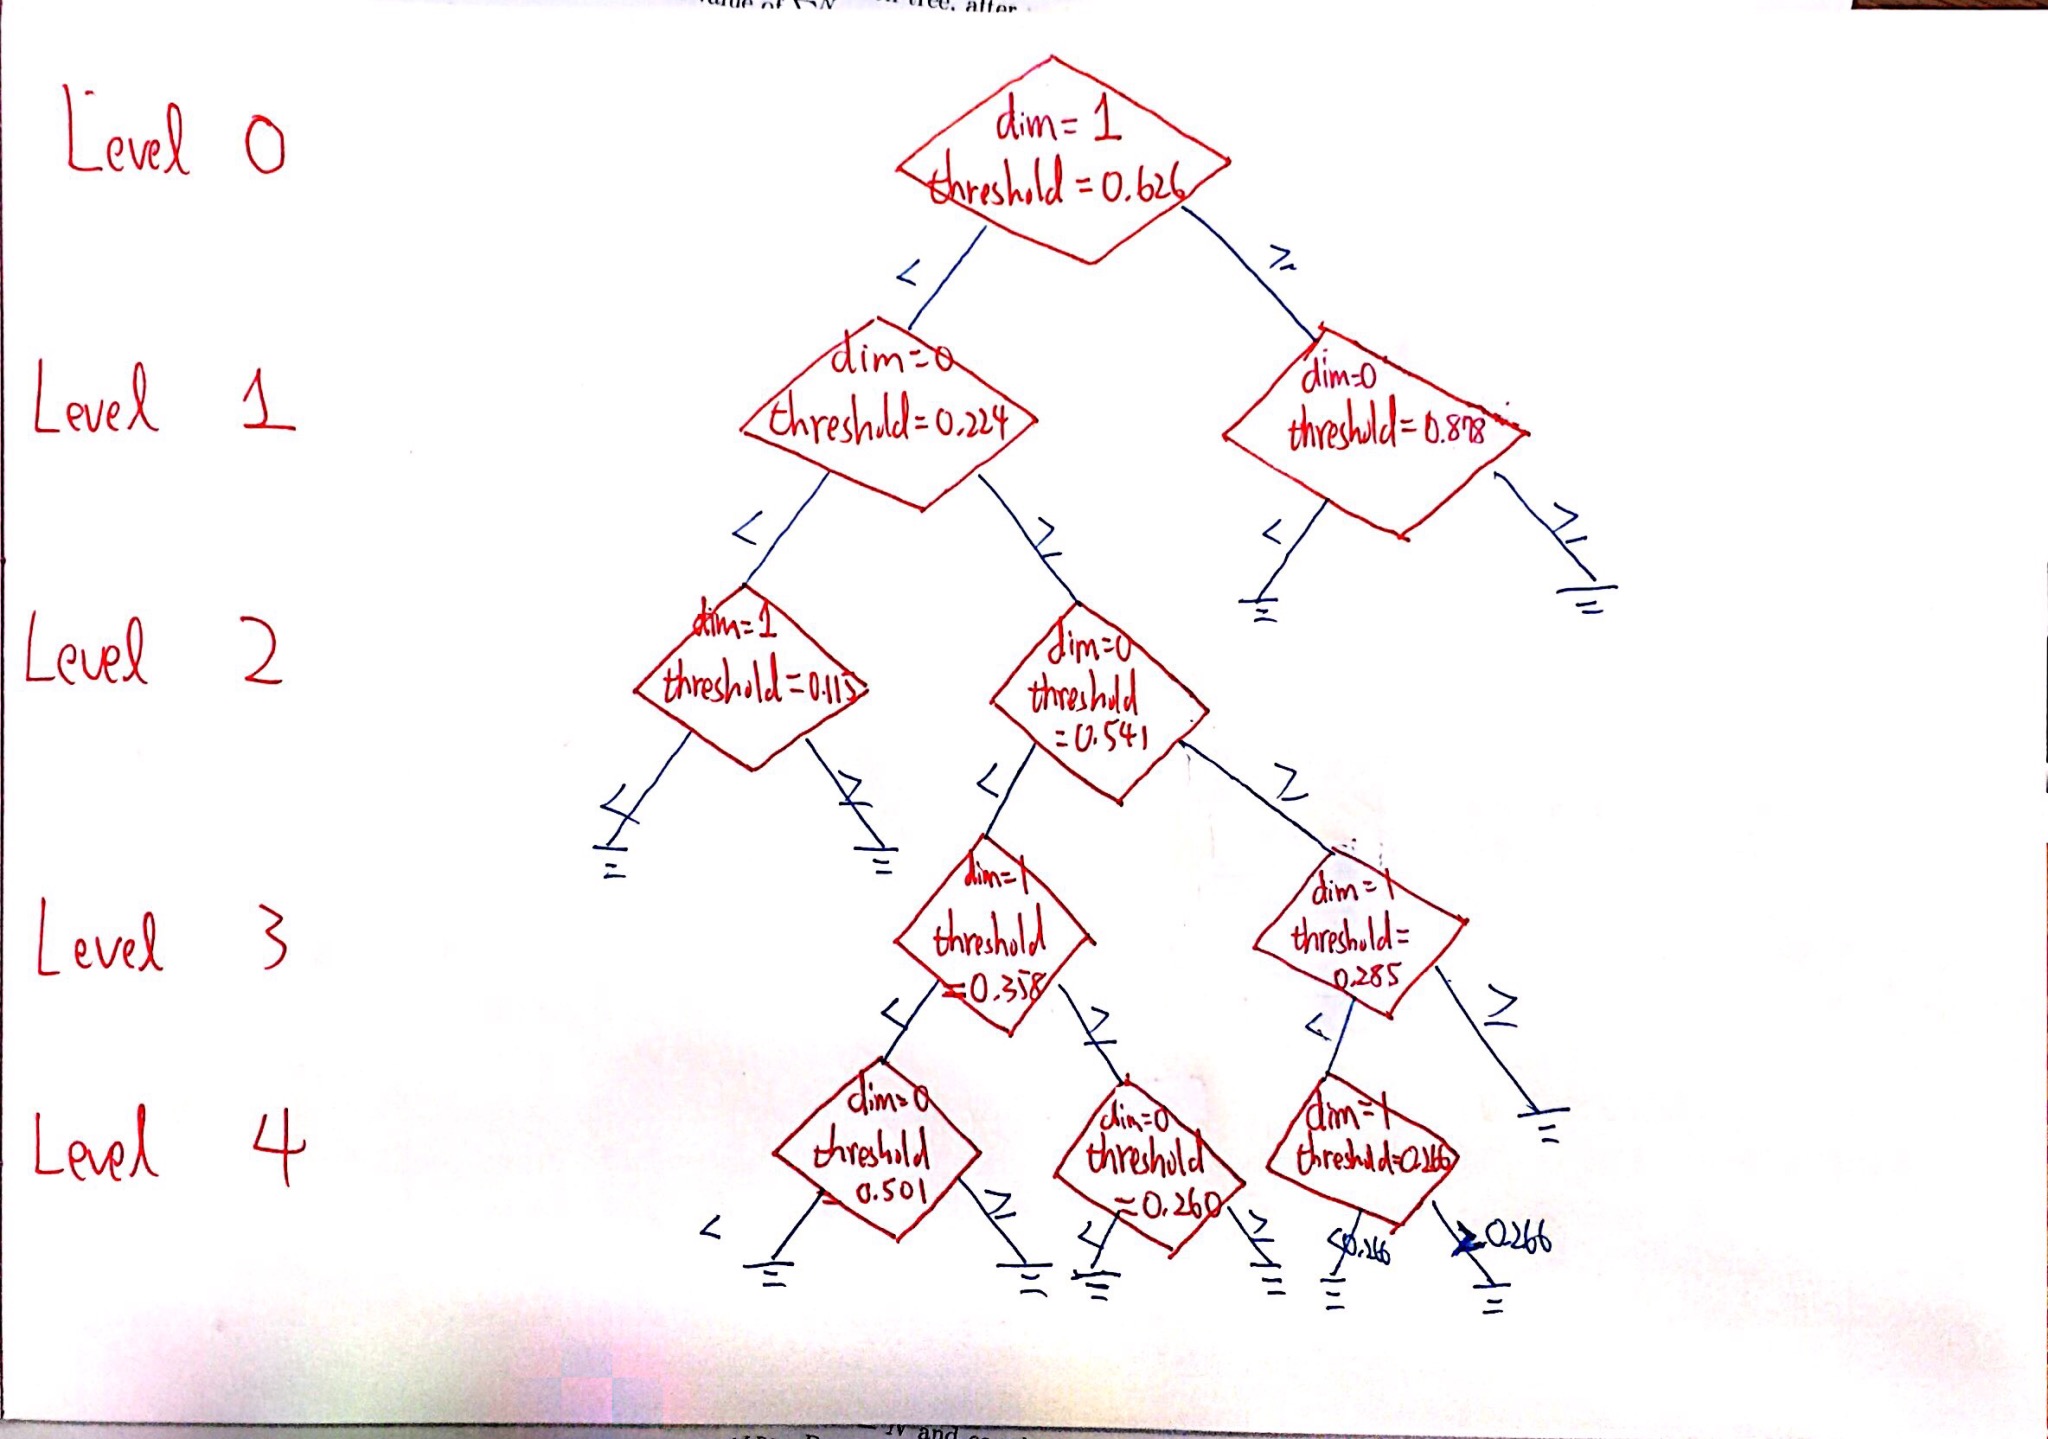 tree, after
Level 0
dim= 1
threshold = 0.626
<
≥
Level 1
dim=0
threshold=0.224
dim=0
threshold=0.878
<
≥
<
≥
Level 2
dim=1
threshold=0.115
dim=0
threshold
=0.541
<
≥
<
≥
Level 3
dim=1
threshold
=0.358
dim=1
threshold=
0.285
<
≥
<
≥
Level 4
dim=0
threshold
= 0.501
dim=0
threshold
=0.260
dim=1
threshold=0.266
<
≥
<
≥
<0.266
≥0.266
and